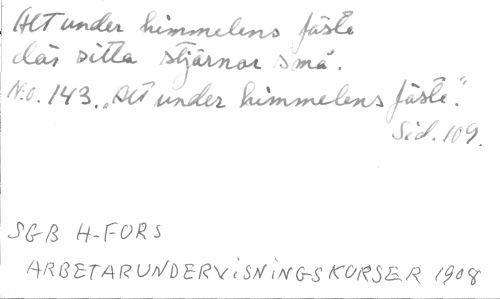 Allt under himmelens fäste
där sitta stjärnor små.
N:o. 143. "Allt under himmelens fäste."
Sid. 109.
SGB H-FORS
ARBETARUNDERVISNINGSKURSER 1908